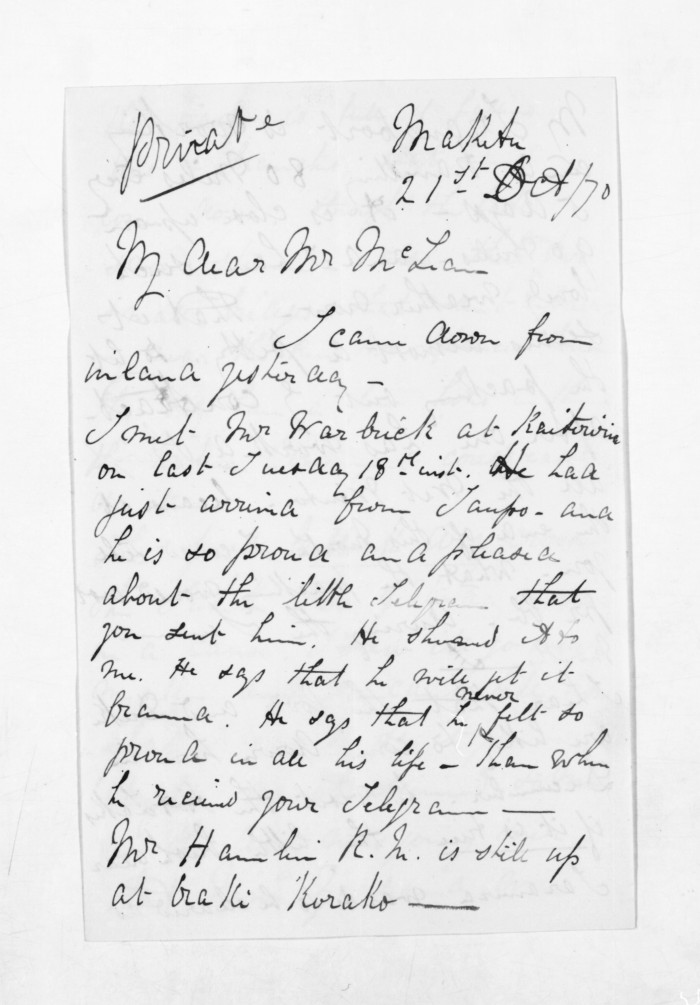 Private
Maketu
21st Oct/70
My dear Mr McLean
I came down from
inland yesterday -
I met Mr Warbrick at Kaiteriria
on last Tuesday 18th inst. He had
just arrived from Taupo - and
he is so proud and pleased
about the little Telegram that
you sent him. He showed it to
me. He says that he will get it
framed. He says that he never felt so
proud in all his life - than when
he received your Telegram —
Mr Hamlin R.M. is still up
at Oraki Korako —